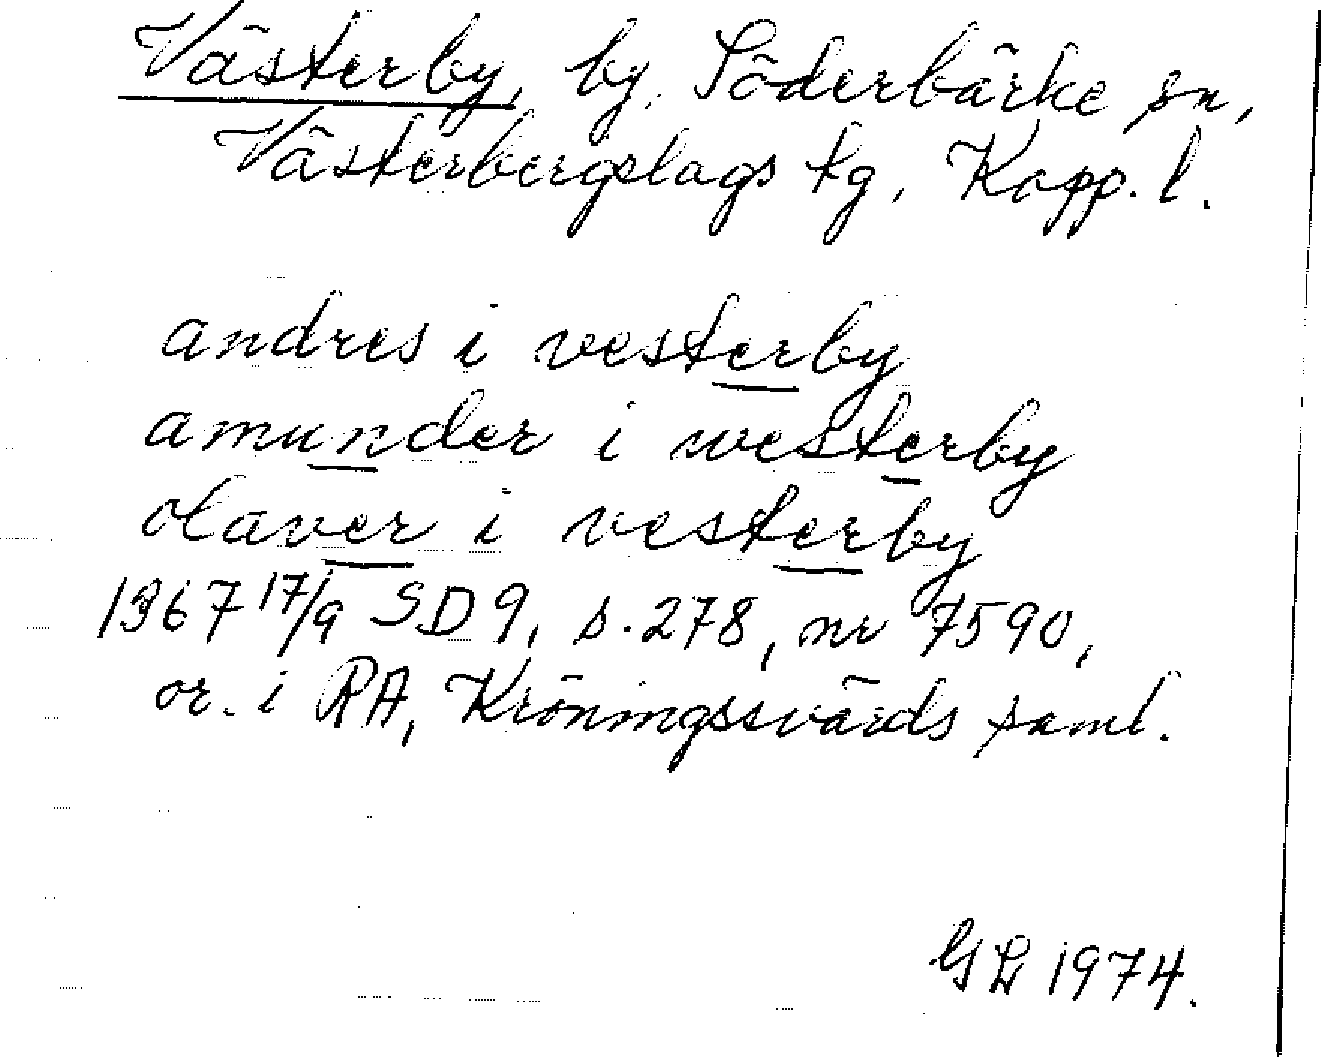 Västerby, by, Söderbärke sn,
Västerbergslags tg, Kopp. l.
andres i vesterby
amunder i westerby
olaver i vesterby
1367 17/9 SD 9, s. 278, nr 7590,
or. i RA, Kröningssvärds saml.
GL 1974.